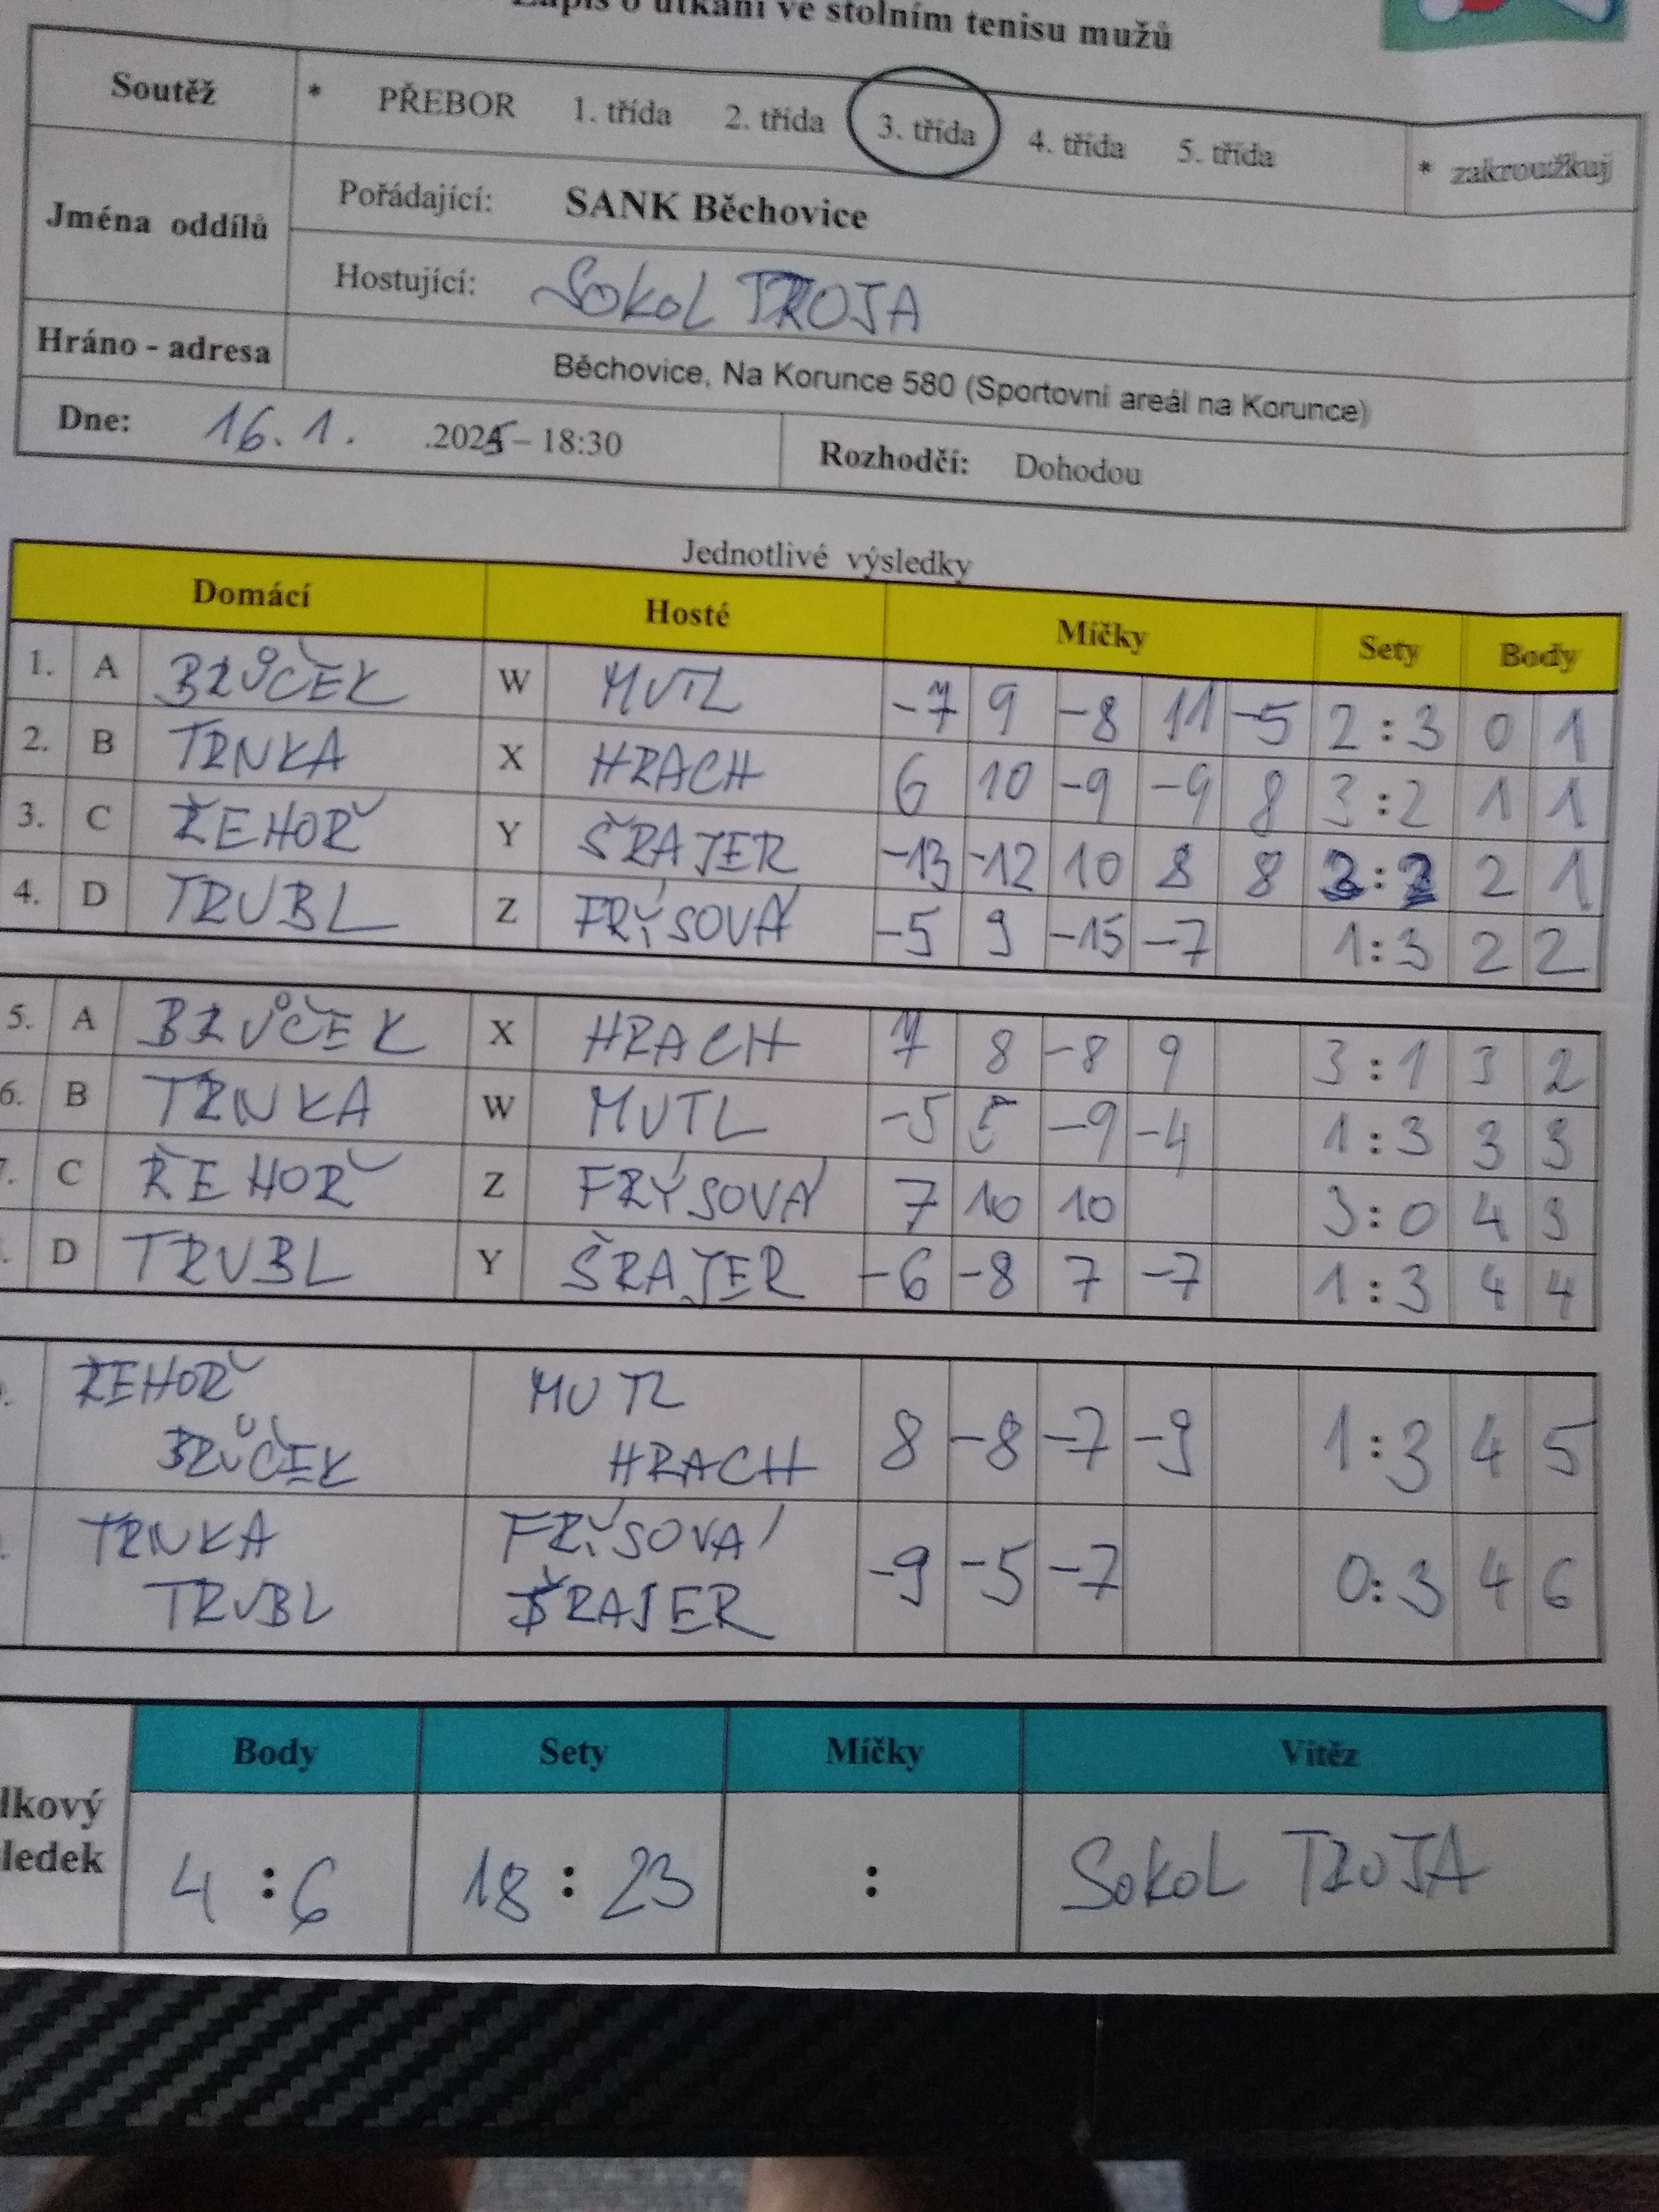 Zápis o utkání ve stolním tenisu mužů
Soutěž * PŘEBOR 1. třída 2. třída 3. třída 4. třída 5. třída * zakroužkuj
Jména oddílů
Pořádající: SANK Běchovice
Hostující: SOKOL TROJA
Hráno - adresa Běchovice, Na Korunce 580 (Sportovní areál na Korunce)
Dne: 16.1. .2025 – 18:30 Rozhodčí: Dohodou
Jednotlivé výsledky
Domácí Hosté Míčky Sety Body
1. A BRŮČEK W MUTL -7 9 -8 11 -5 2:3 0 1
2. B TRNKA X HRACH 6 10 -9 -9 8 3:2 1 1
3. C ŘEHOŘ Y ŠRAJER -13 -12 10 8 8 3:2 2 1
4. D TRUBL Z FRÝSOVÁ -5 9 -15 -7 1:3 2 2
5. A BRŮČEK X HRACH 7 8 -8 9 3:1 3 2
6. B TRNKA W MUTL -5 5 -9 -4 1:3 3 3
7. C ŘEHOŘ Z FRÝSOVÁ 7 10 10 3:0 4 3
. D TRUBL Y ŠRAJER -6 -8 7 -7 1:3 4 4
ŘEHOŘ MUTL
BRŮČEK HRACH 8 -8 -7 -9 1:3 4 5
TRNKA FRÝSOVÁ
TRUBL ŠRAJER -9 -5 -7 0:3 4 6
Body Sety Míčky Vítěz
lkový
ledek 4:6 18:23 : SOKOL TROJA